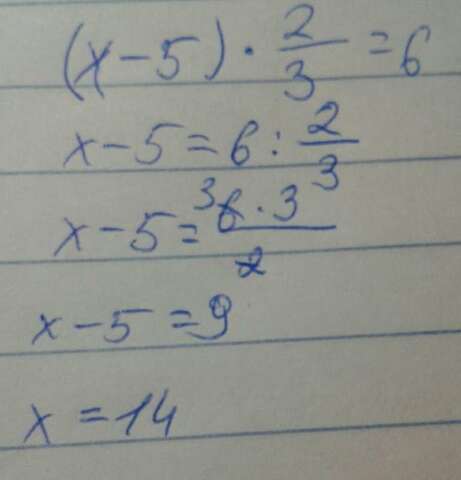 (x-5)·2/3=6
x-5=6:2/3
x-5=³6·3/2
x-5=9
x=14